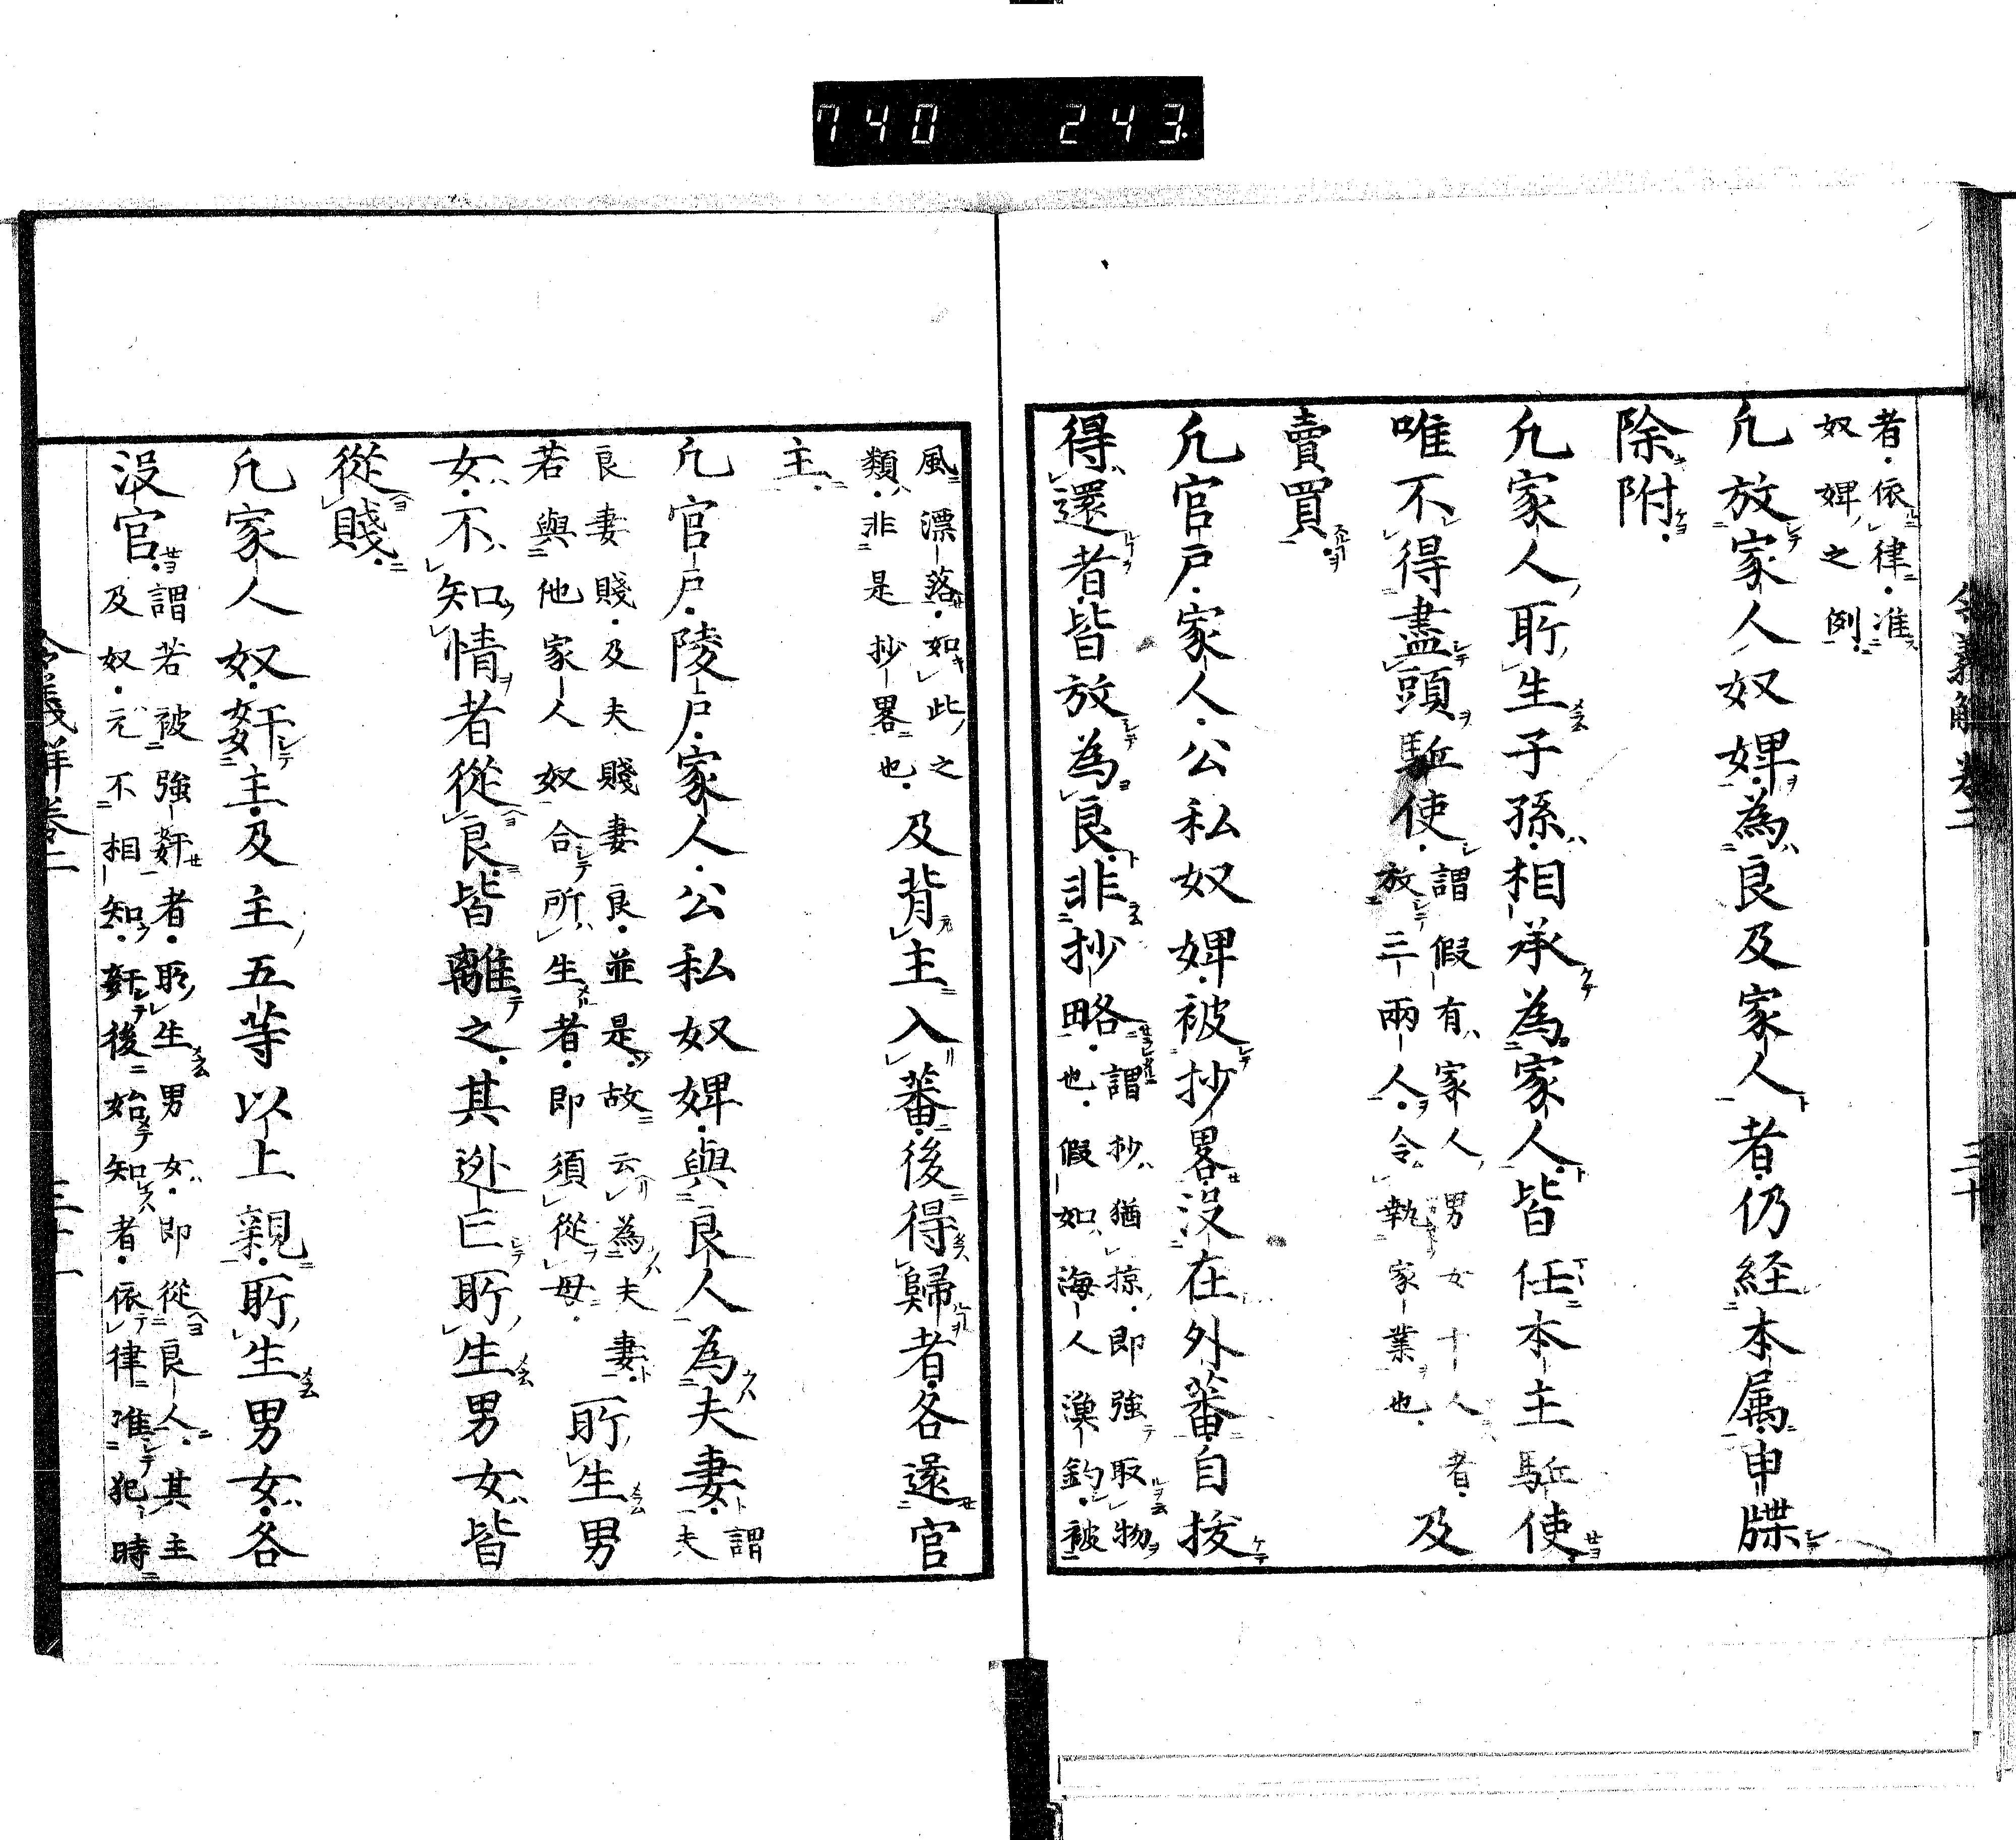 740 243
令義解卷二 三十
者依律准
奴婢之例
凢放家人奴婢為良及家人者仍経本属申牒
除附
凢家人所生子孫相承為家人皆任本主駈使
唯不得盡頭駈使謂假有家人男女十人者
放三兩人令執家業也及
賣買
凢官戸家人公私奴婢被抄畧没在外蕃自抜
得還者皆放為良非抄略謂抄猶掠即強取物
也假如海人漁釣被
風漂落如此之
類非是抄畧也及背主入蕃後得歸者各還官
主
凢官戸陵戸家人公私奴婢與良人為夫妻謂
夫
良妻賤及夫賤妻良並是故云為夫妻
若與他家人奴合所生者即須從母所生男
女不知情者從良皆離之其逃亡所生男女皆
從賤
凢家人奴姧主及主五等以上親所生男女各
没官謂若被強姧者所生男女即從良人其主
及奴元不相知姧後始知者依律准犯時
令義解卷二 三十一